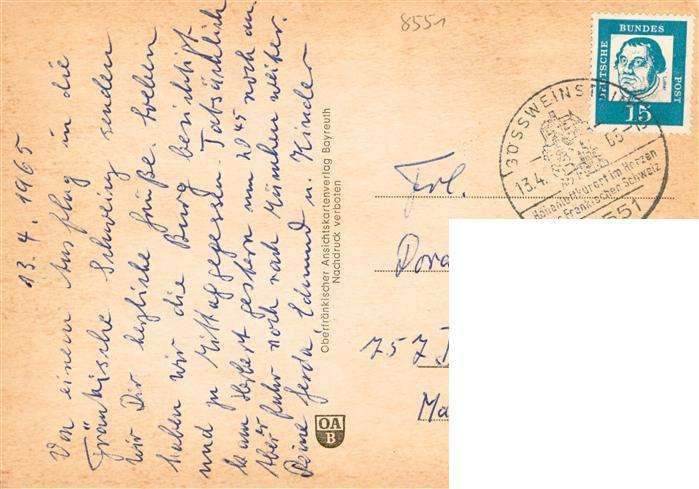 13.4.1965
Von einem Ausflug in die
Fränkische Schweiz senden
wir Dir herzliche Grüße. Soeben
haben wir die Burg besichtigt
und zu Mittag gegessen. Tatsächlich
kam Herbert gestern um 20 45 noch an.
Aber er fuhr noch nach München weiter.
Deine Gerda, Edmund u. Kinder
Oberfränkischer Ansichtskartenverlag Bayreuth
Nachdruck verboten
OA
B
8551
DEUTSCHE BUNDES POST
Luther
15
GÖSSWEINST
13.4.
65-1
Höhenluftkurort im Herzen
Fränkischer Schweiz
551
Frl.
Dora
757
Ma